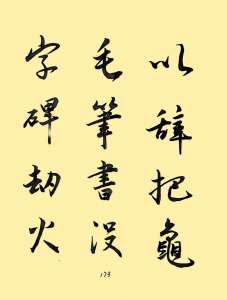 以辞把龜
毛筆書没
字碑劫火
173